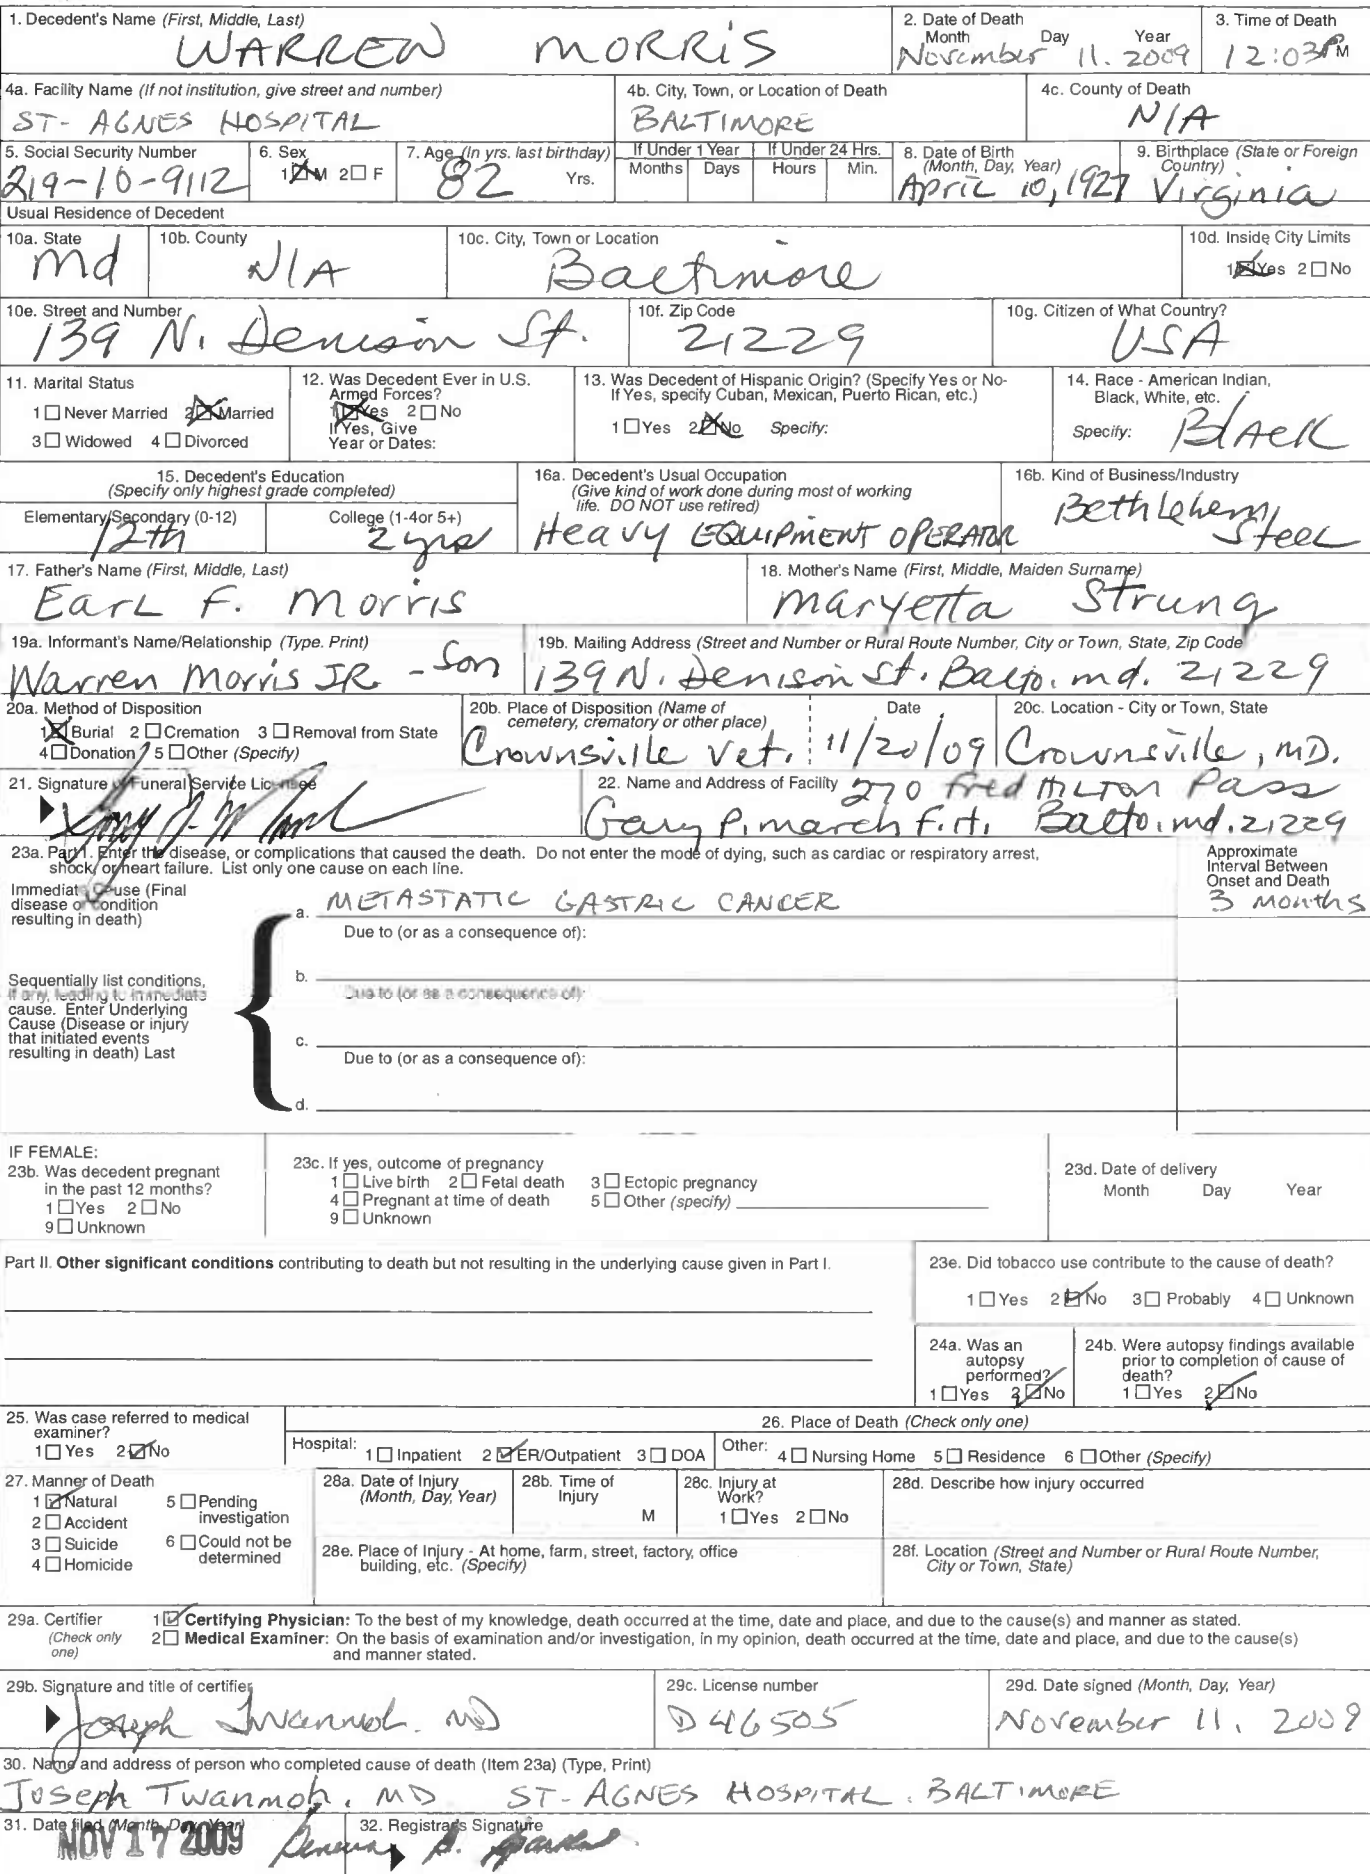 1. Decedent's Name (First, Middle, Last)
WARREN MORRIS
2. Date of Death
Month Day Year
November 11. 2009
3. Time of Death
12:03 PM
4a. Facility Name (If not institution, give street and number)
ST- AGNES HOSPITAL
4b. City, Town, or Location of Death
BALTIMORE
4c. County of Death
N/A
5. Social Security Number
219-10-9112
6. Sex
1☒M 2☐F
7. Age (In yrs. last birthday)
82 Yrs.
If Under 1 Year
Months Days
If Under 24 Hrs.
Hours Min.
8. Date of Birth
(Month, Day, Year)
April 10, 1927
9. Birthplace (State or Foreign
Country)
Virginia
Usual Residence of Decedent
10a. State
Md
10b. County
N/A
10c. City, Town or Location
Baltimore
10d. Inside City Limits
1☒Yes 2☐No
10e. Street and Number
139 N. Denison St.
10f. Zip Code
21229
10g. Citizen of What Country?
USA
11. Marital Status
1☐Never Married 2☒Married
3☐Widowed 4☐Divorced
12. Was Decedent Ever in U.S.
Armed Forces?
1☒Yes 2☐No
If Yes, Give
Year or Dates:
13. Was Decedent of Hispanic Origin? (Specify Yes or No-
If Yes, specify Cuban, Mexican, Puerto Rican, etc.)
1☐Yes 2☒No Specify:
14. Race - American Indian,
Black, White, etc.
Specify: Black
15. Decedent's Education
(Specify only highest grade completed)
Elementary/Secondary (0-12)
12th
College (1-4or 5+)
2 yrs
16a. Decedent's Usual Occupation
(Give kind of work done during most of working
life. DO NOT use retired)
Heavy EQUIPMENT OPERATOR
16b. Kind of Business/Industry
Bethlehem
Steel
17. Father's Name (First, Middle, Last)
Earl F. Morris
18. Mother's Name (First, Middle, Maiden Surname)
Maryetta Strung
19a. Informant's Name/Relationship (Type. Print)
Warren Morris JR - Son
19b. Mailing Address (Street and Number or Rural Route Number, City or Town, State, Zip Code)
139 N. Denison St. Balto. md. 21229
20a. Method of Disposition
1☒Burial 2☐Cremation 3☐Removal from State
4☐Donation 5☐Other (Specify)
20b. Place of Disposition (Name of
cemetery, crematory or other place)
Crownsville Vet.
Date
11/20/09
20c. Location - City or Town, State
Crownsville, MD.
21. Signature of Funeral Service Licensee
22. Name and Address of Facility 270 Fred HILTON Pass
Gary P. March F.H. Balto. md. 21229
23a. Part I. Enter the disease, or complications that caused the death. Do not enter the mode of dying, such as cardiac or respiratory arrest,
shock, or heart failure. List only one cause on each line.
Approximate
Interval Between
Onset and Death
Immediate Cause (Final
disease or condition
resulting in death)
a. METASTATIC GASTRIC CANCER
3 months
Due to (or as a consequence of):
b.
Sequentially list conditions,
if any, leading to immediate
cause. Enter Underlying
Cause (Disease or injury
that initiated events
resulting in death) Last
Due to (or as a consequence of):
c.
Due to (or as a consequence of):
d.
IF FEMALE:
23b. Was decedent pregnant
in the past 12 months?
1☐Yes 2☐No
9☐Unknown
23c. If yes, outcome of pregnancy
1☐Live birth 2☐Fetal death 3☐Ectopic pregnancy
4☐Pregnant at time of death 5☐Other (specify)
9☐Unknown
23d. Date of delivery
Month Day Year
Part II. Other significant conditions contributing to death but not resulting in the underlying cause given in Part I.
23e. Did tobacco use contribute to the cause of death?
1☐Yes 2☑No 3☐Probably 4☐Unknown
24a. Was an
autopsy
performed?
1☐Yes 2☑No
24b. Were autopsy findings available
prior to completion of cause of
death?
1☐Yes 2☑No
25. Was case referred to medical
examiner?
1☐Yes 2☑No
26. Place of Death (Check only one)
Hospital: 1☐Inpatient 2☑ER/Outpatient 3☐DOA
Other: 4☐Nursing Home 5☐Residence 6☐Other (Specify)
27. Manner of Death
1☑Natural 5☐Pending
investigation
2☐Accident
3☐Suicide 6☐Could not be
determined
4☐Homicide
28a. Date of Injury
(Month, Day, Year)
28b. Time of
Injury
M
28c. Injury at
Work?
1☐Yes 2☐No
28d. Describe how injury occurred
28e. Place of Injury - At home, farm, street, factory, office
building, etc. (Specify)
28f. Location (Street and Number or Rural Route Number,
City or Town, State)
29a. Certifier
(Check only
one)
1☑Certifying Physician: To the best of my knowledge, death occurred at the time, date and place, and due to the cause(s) and manner as stated.
2☐Medical Examiner: On the basis of examination and/or investigation, in my opinion, death occurred at the time, date and place, and due to the cause(s)
and manner stated.
29b. Signature and title of certifier
Joseph Twanmoh. MD
29c. License number
D46505
29d. Date signed (Month, Day, Year)
November 11, 2009
30. Name and address of person who completed cause of death (Item 23a) (Type, Print)
Joseph Twanmoh, MD ST- AGNES HOSPITAL, BALTIMORE
31. Date filed (Month, Day, Year)
NOV 17 2009
32. Registrar's Signature